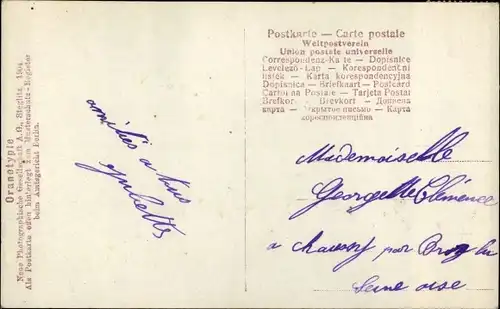 Oranotypie
Neue Photographische Gesellschaft A.G., Steglitz 1904.
Als Postkarte offen hinterlegt zum Musterschutz-Register
beim Amtsgericht Berlin.
amitiés à tous
Postkarte — Carte postale
Weltpostverein
Union postale universelle
Correspondenz-Karte — Dopisnice
Levelező-Lap — Korespondentni
listek — Karta korespondencyjna
Dopisnica — Briefkaart — Postcard
Cartolina Postale — Tarjeta Postal
Brefkort — Brevkort — Дописна
карта — Открытое письмо — Карта
кореспонденційна
Mademoiselle
Georgette Clémence
a par
Seine oise